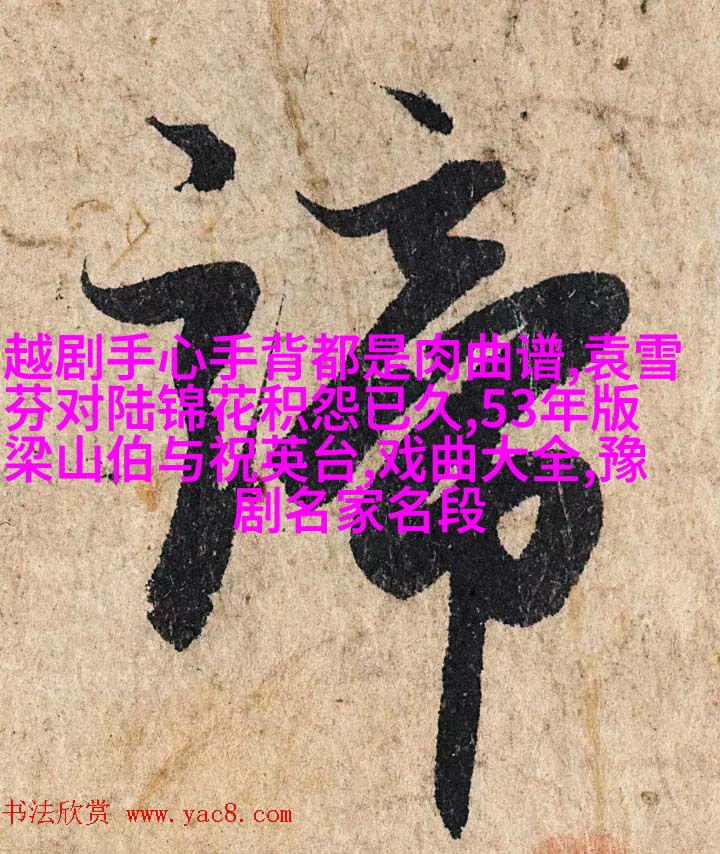 谛
越剧手心手背都是肉曲谱,袁雪
芬对陆锦花积怨已久,53年版
梁山伯与祝英台,戏曲大全,豫
剧名家名段
书法欣赏 www.yac8.com